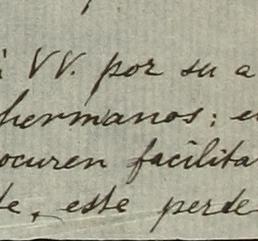 VV. por su a
hermanos: e
ocuren facilita
te, este perde